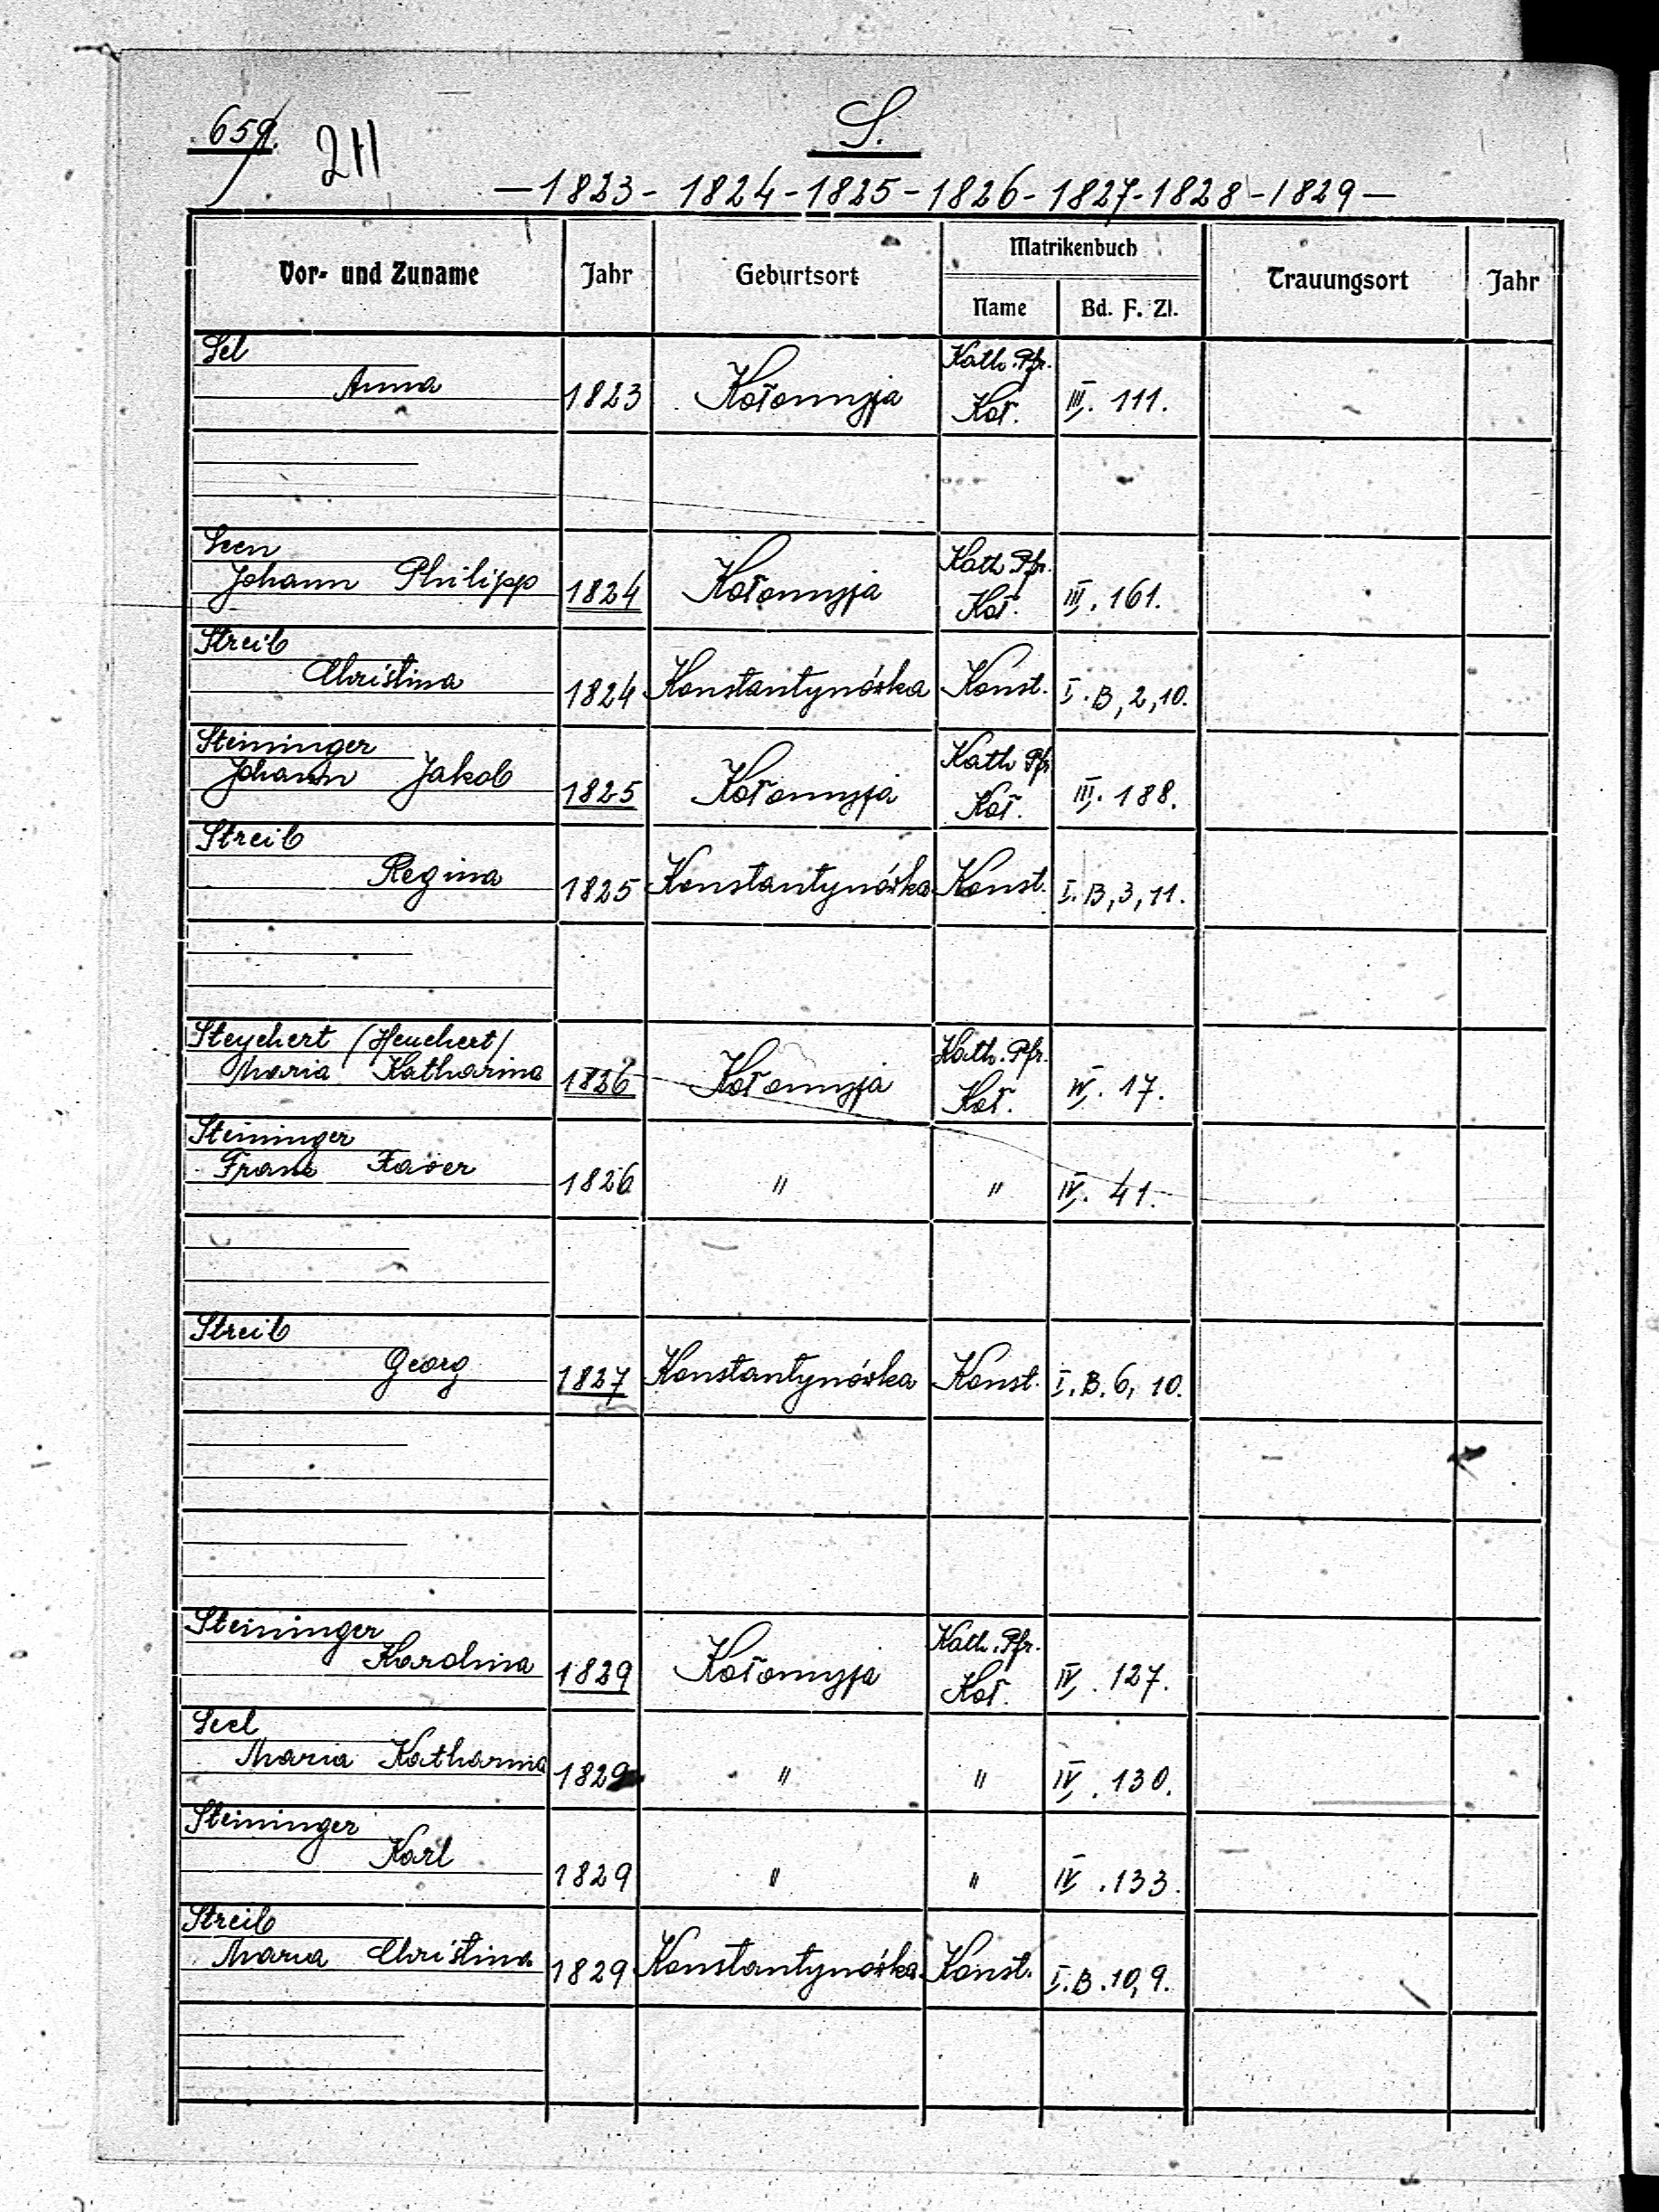 659.
211
S.
— 1823 - 1824 - 1825 - 1826 - 1827 - 1828 - 1829 —
Vor- und Zuname Jahr Geburtsort Matrikenbuch Trauungsort Jahr
Name Bd. F. Zl.
Sel
Anna 1823 Kołomyja Kath. Pfr. Koł. III. 111.
Seen
Johann Philipp 1824 Kołomyja Kath Pfr. Koł. III. 161.
Streib
Christina 1824 Konstantynówka Konst. I. B, 2, 10.
Steininger
Johann Jakob 1825 Kołomyja Kath Pfr Koł. III. 188.
Streib
Regina 1825 Konstantynówka Konst. I. B, 3, 11.
Steychert /Heuchert/
Maria Katharina 1826 Kołomyja Kath. Pfr. Koł. IV. 17.
Steininger
Franz Xaver 1826 " " IV. 41.
Streib
Georg 1827 Konstantynówka Konst. I. B. 6, 10.
Steininger
Karolina 1829 Kołomyja Kath. Pfr. Koł. IV. 127.
Seel
Maria Katharina 1829 " " IV. 130.
Steininger
Karl 1829 " " IV. 133.
Streib
Maria Christina 1829 Konstantynówka Konst. I. B. 10, 9.